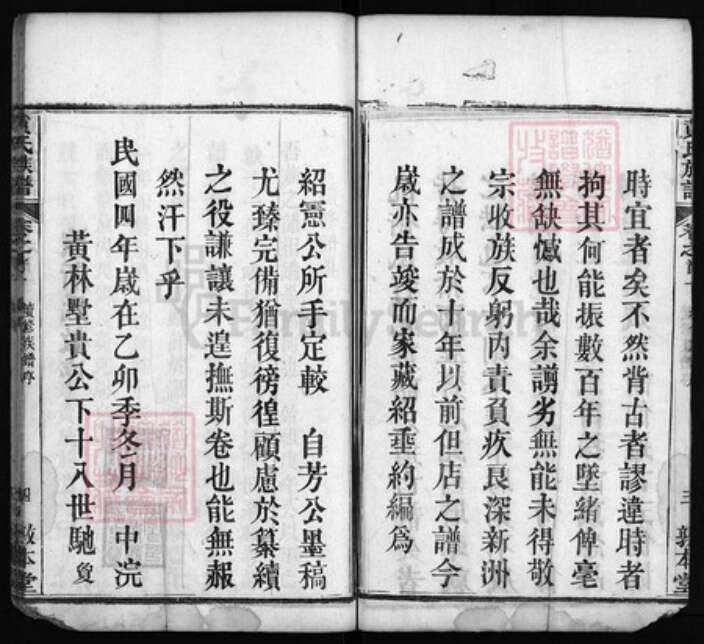 時宜者矣不然背古者謬違時者
拘其何能振數百年之墜緒俾毫
無缺憾也哉余譾劣無能未得敬
宗收族反躬內責負疚良深新洲
之譜成於十年以前但店之譜今
歲亦告竣而家藏紹垂約編為
紹憲公所手定較 自芳公墨稿
尤臻完備猶復徬徨顧慮於纂續
之役謙讓未遑撫斯卷也能無赧
然汗下乎
民國四年歲在乙卯季冬月 中浣
黃林墅貴公下十八世馳
氏族譜
續修族譜序
四
敦本堂
三
敦本堂
FamilySearch